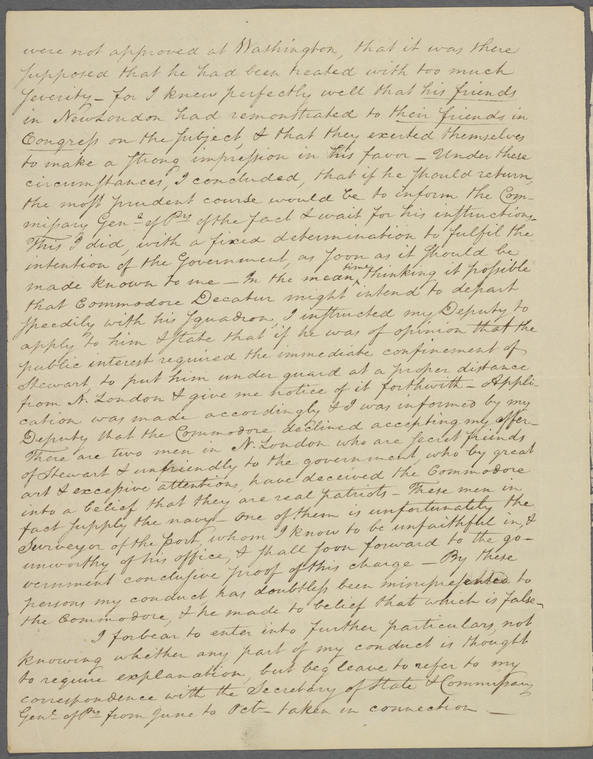 were not approved at Washington, that it was there
supposed that he had been treated with too much
severity – for I knew perfectly well that his friends
in New London had remonstrated to their friends in
Congress on the subject, & that they exerted themselves
to make a strong impression in his favor – Under these
circumstances, I concluded, that if he should return,
the most prudent course would be to inform the Com-
missary Genl of Prs of the fact & wait for his instructions
This I did, with a fixed determination to fulfil the
intention of the Government, as soon as it should be
made known to me – In the mean time thinking it possible
that Commodore Decatur might intend to depart
speedily with his squadron, I instructed my Deputy to
apply to him & state that if he was of opinion that the
public interest required the immediate confinement of
Stewart, to put him under guard at a proper distance
from N. London & give me notice of it forthwith – Appli-
cation was made accordingly & I was informed by my
Deputy that the Commodore declined accepting my offer –
There are two men in N. London who are secret friends
of Stewart & unfriendly to the government, who by great
art & excessive attention, have deceived the Commodore
into a belief that they are real patriots – These men in
fact supply the navy – One of them is unfortunately the
Surveyor of the Port, whom I know to be unfaithful in, &
unworthy of his office, & shall soon forward to the go-
vernment conclusive proof of this charge – By these
persons my conduct has doubtless been misrepresented to
the Commodore, & he made to belief that which is false –
I forbear to enter into further particulars, not
knowing whether any part of my conduct is thought
to require explanation, but beg leave to refer to my
correspondence with the Secretary of State & Commissary
Genl of Prs from June to Octr taken in connection –